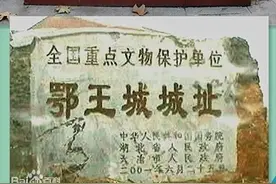 全国重点文物保护单位
鄂王城城址
中华人民共和国国务院
湖北省人民政府
大冶市人民政府
二00一年六月二十五日
Bai百科